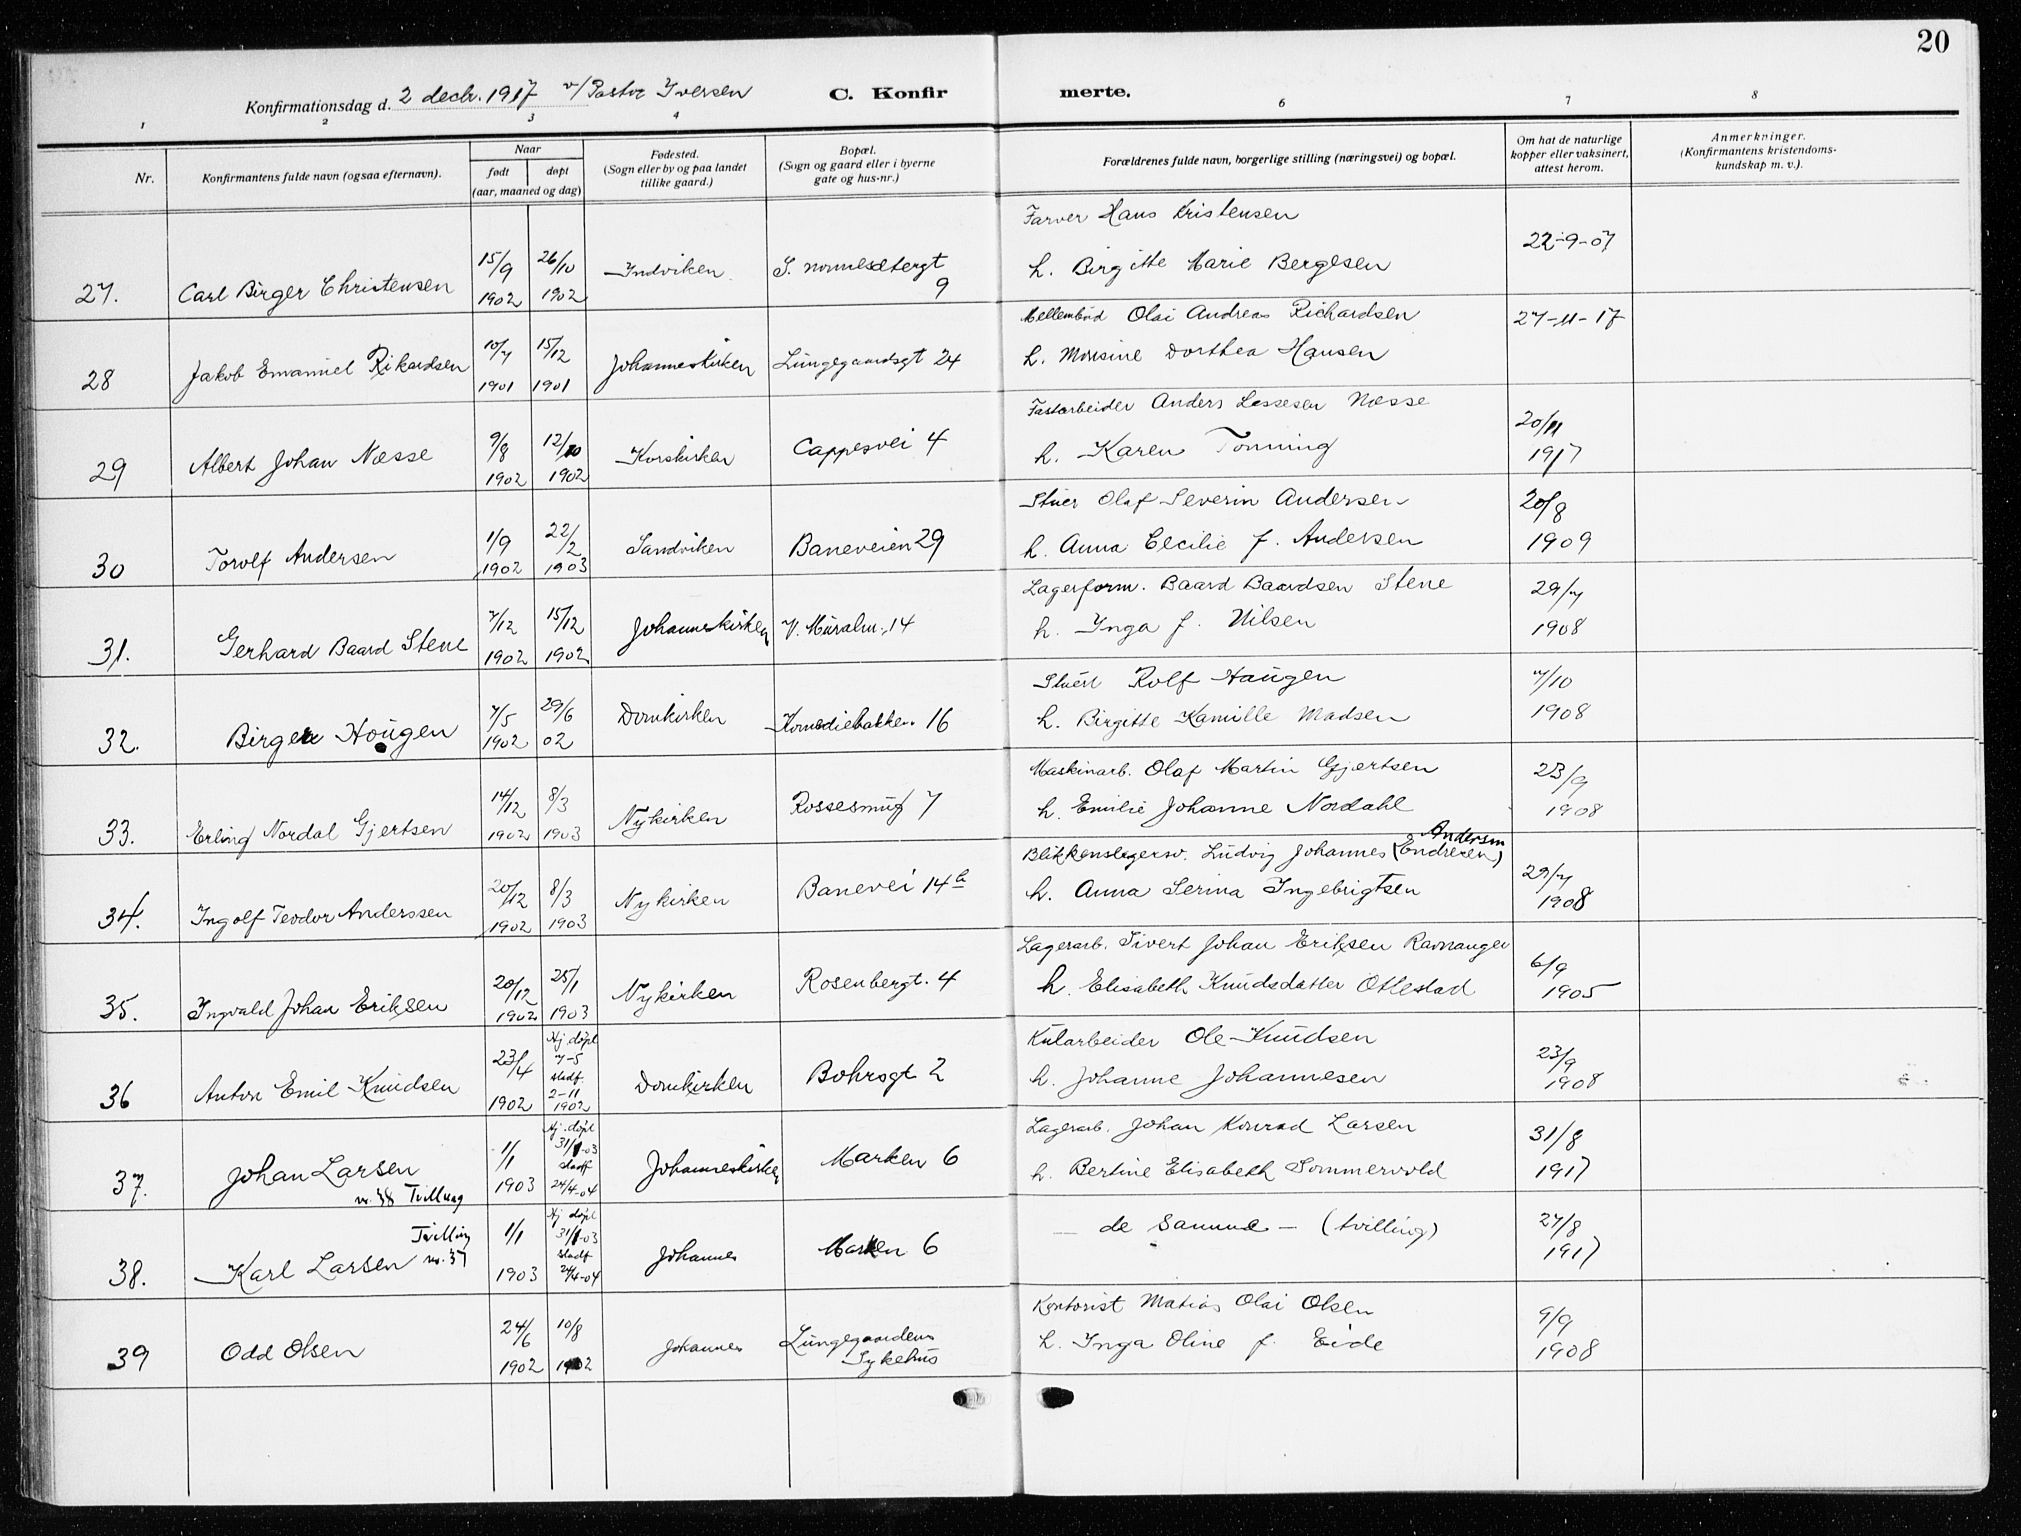 20
Konfirmationsdag d. 2 decbr. 1917 v/Pastor Iversen
C. Konfirmerte.
1 2 3 4 6 7 8
Nr.
Konfirmantens fulde navn (ogsaa efternavn).
Naar
født døpt
(aar, maaned og dag)
Fødested.
(Sogn eller by og paa landet
tillike gaard.)
Bopæl.
(Sogn og gaard eller i byerne
gate og hus-nr.)
Forældrenes fulde navn, borgerlige stilling (næringsvei) og bopæl.
Om hat de naturlige
kopper eller vaksinert,
attest herom.
Anmerkninger.
(Konfirmantens kristendoms-
kundskap m. v.).
27. Carl Birger Christensen 15/9 1902 26/10 1902 Indviken 9
Farver Hans Kristensen
h. Birgitte Marie Bergesen
22-9-07
28 Jakob Emanuel Rikardsen 10/7 1901 15/12 1901 Johanneskirken Lungegaardsgt 24
Mellembud Olai Andreas Richardsen
h. Mousine Dorthea Hansen
27-11-17
29 Albert Johan Næsse 9/8 1902 12/10 1902 Korskirken Cappesvei 4
Fastarbeider Anders Lassesen Næsse
h. Karen Tonning
20/11
1917
30 Torolf Andersen 1/9 1902 22/2 1903 Sandviken Baneveien 29
Stuer Olaf Severin Andersen
h. Anna Cecilie f. Andersen
20/8
1909
31. Gerhard Baard Stene 7/12 1902 15/12 1902 Johanneskirken V. Muralm. 14
Lagerform. Baard Baardsen Stene
h. Inga f. Nilsen
29/7
1908
32. Birger Hougen 7/5 1902 29/6 02 Domkirken Komediebakken 16
Stuert Rolf Haugen
h. Birgitte Kamille Madsen
7/10
1908
33. Erling Nordal Gjertsen 14/12 1902 8/3 1903 Nykirken Rossesmug 7
Maskinarb. Olaf Martin Gjertsen
h. Emilie Johanne Nordahl
23/9
1908
34. Ingolf Teodor Anderssen 20/12 1902 8/3 1903 Nykirken Banevei 14 b
Andersen
Blikkenslagersv. Ludvig Johannes (Endresen)
h. Anna Serina Ingebrigtsen
29/7
1908
35. Ingvald Johan Eriksen 20/12 1902 25/1 1903 Nykirken Rosenbergt. 4
Lagerarb. Sivert Johan Eriksen Ravnanger
h. Elisabeth Knudsdatter Ottestad
6/9
1905
36 Anton Emil Knudsen 23/4 1902 Hj. døpt 7-5 stadf. 2-11 1902 Domkirken Bohrsgt 2
Kularbeider Ole Knudsen
h. Johanne Johannesen
23/9
1908
37. Johan Larsen nr. 38 Tvilling 1/1 1903 Hj. døpt 31/1-03 stadf 24/4-04 Johanneskirken Marken 6
Lagerarb. Johan Konrad Larsen
h. Bertine Elisabeth Sommervold
31/8
1917
38. Karl Larsen Tvilling nr. 37 1/1 1903 Hj døpt 31/1-03 stadf 24/4-04 Johannes Marken 6
— de samme — (tvilling)
27/8
1917
39 Odd Olsen 24/6 1902 10/8 1902 Johannes Lungegaardens Sykehus
Kontorist Matias Olai Olsen
h. Inga Oline f. Eide
9/9
1908